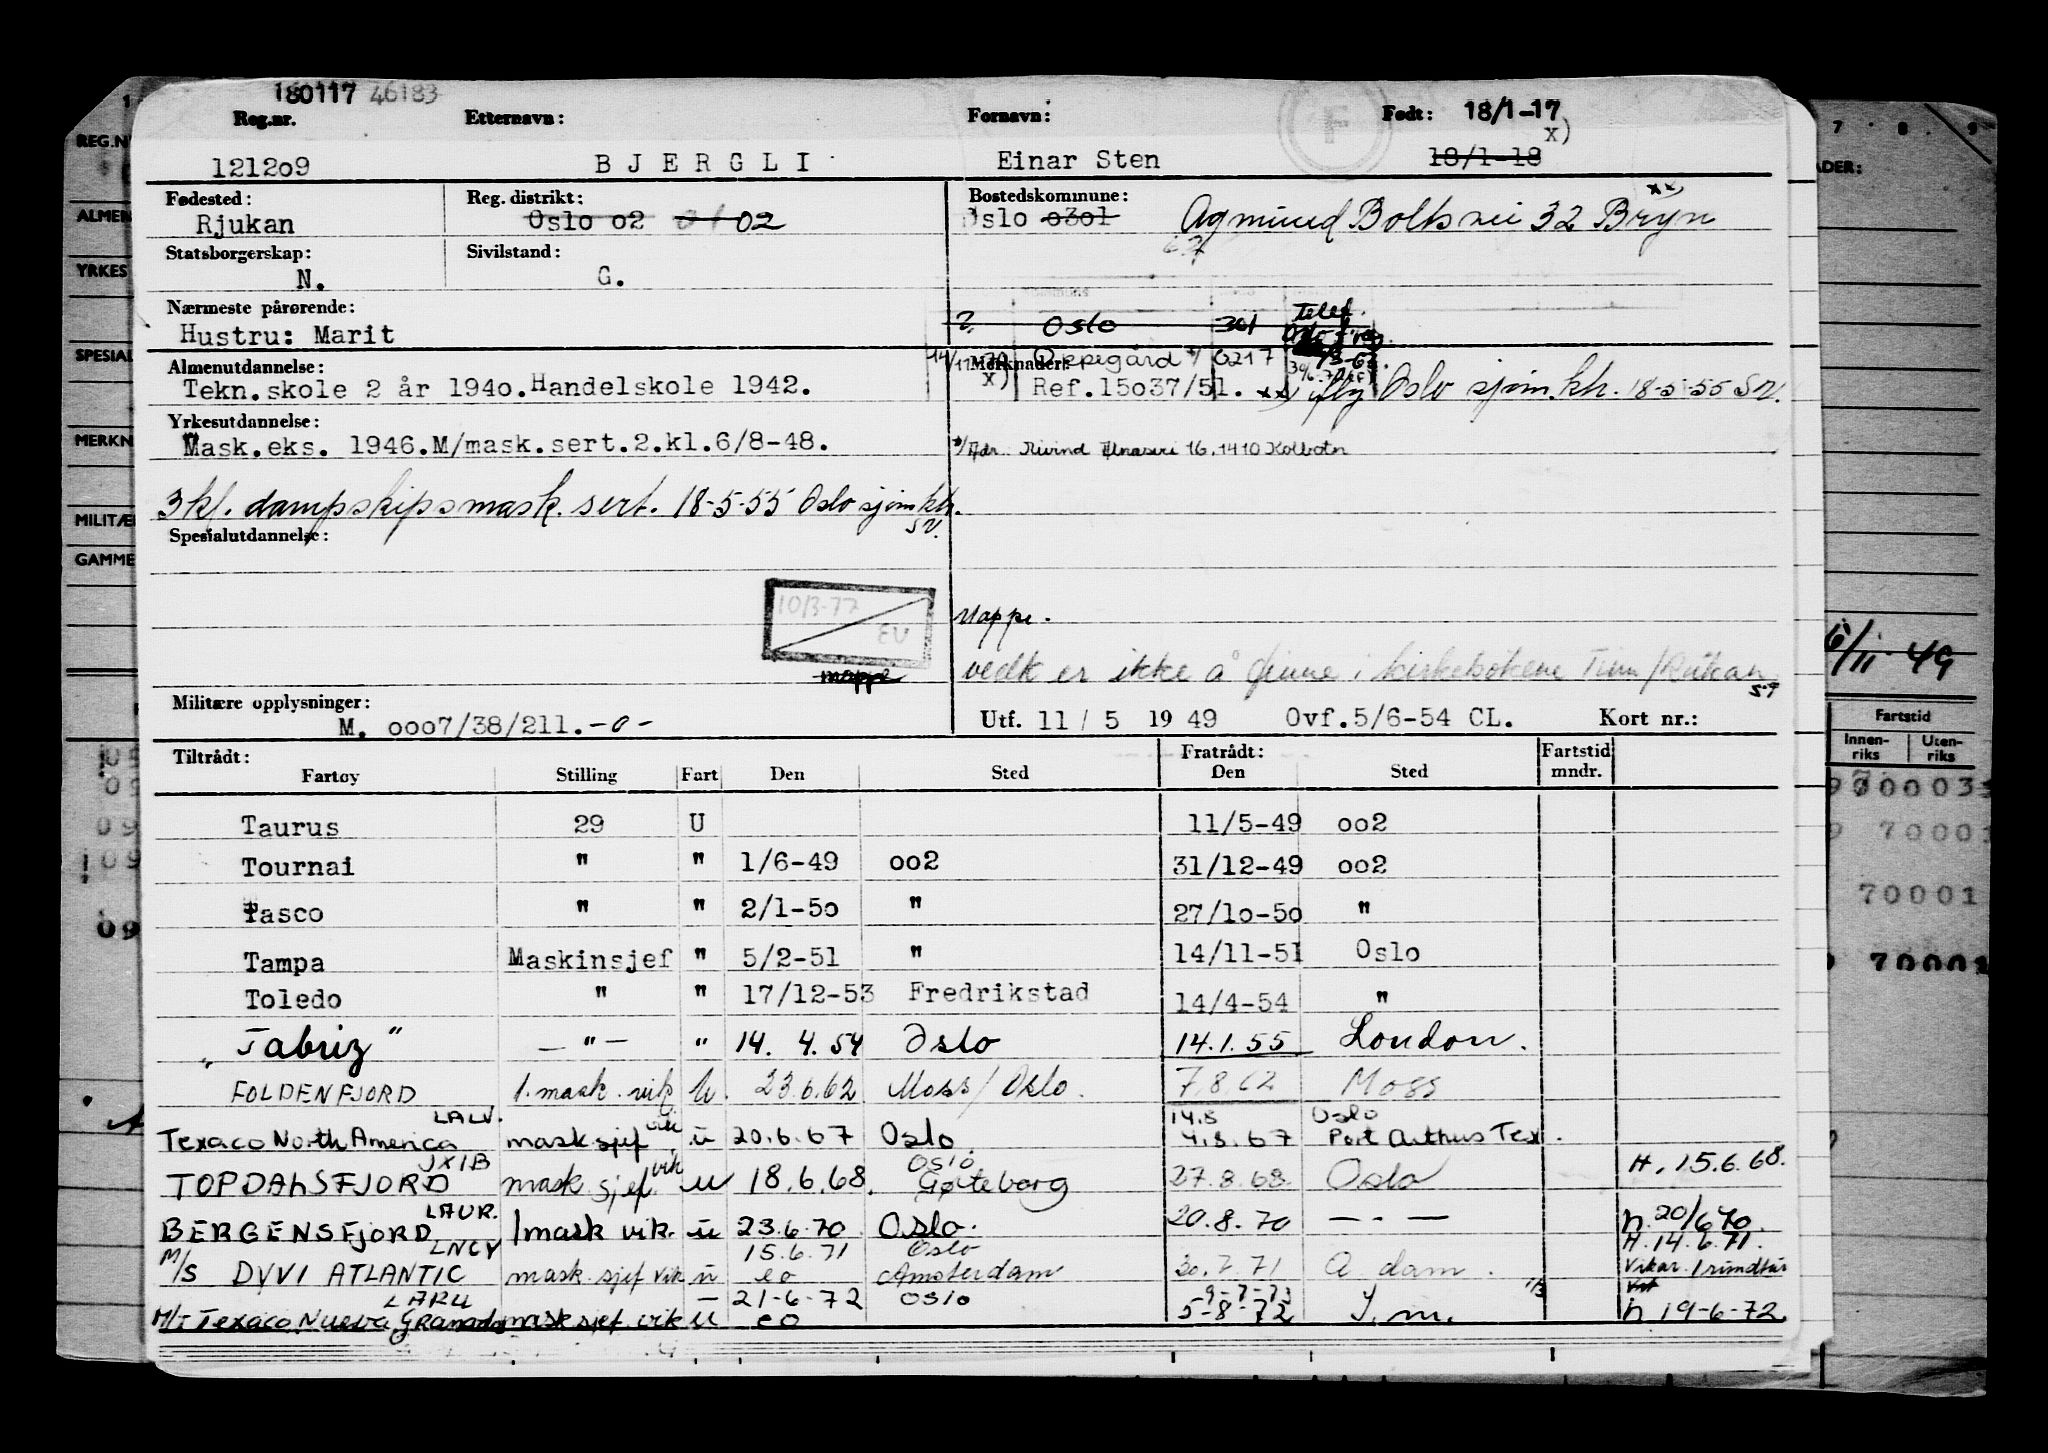 180117 46183
Reg.nr. Etternavn: Fornavn: F Født: 18/1-17
x)
121209 BJERGLI Einar Sten 18/1-18
Fødested: Reg. distrikt: Bostedskommune: xx)
Rjukan Oslo 02 02 Oslo 0301 Agmund Bolts vei 32 Bryn
Statsborgerskap: Sivilstand:
N. G.
Nærmeste pårørende: Telef.
Hustru: Marit 2. Oslo 301
Almenutdannelse: Merknader: Oppegård 0217
Tekn.skole 2 år 1940.Handelskole 1942. x) Ref.15037/51. xx) Oslo sjøm.ktr. 18-5-55 SN.
Yrkesutdannelse:
Mask.eks. 1946.M/mask.sert.2.kl.6/8-48. Adr. 16, 1410 Kolbotn
3 kl. dampskipsmask. sert. 18-5-55 Oslo sjøm.ktr.
SN.
Spesialutdannelse:
10/3-77
EU
Mappe.
mappe
vedk er ikke å finne i kirkebøkene Tinn/Rjukan
Militære opplysninger:
M. 0007/38/211.-0- Utf. 11/5 1949 Ovf.5/6-54 CL. Kort nr.:
Tiltrådt: Fratrådt: Fartstid
Fartøy Stilling Fart Den Sted Den Sted mndr.
Taurus 29 U 11/5-49 002
Tournai " " 1/6-49 002 31/12-49 002
Tasco " " 2/1-50 " 27/10-50 "
Tampa Maskinsjef " 5/2-51 " 14/11-51 Oslo
Toledo " " 17/12-53 Fredrikstad 14/4-54 "
"Tabriz" — " — " 14. 4. 54 Oslo 14.1.55 London.
FOLDENFJORD 1. mask. vik u. 23.6.62 Moss/Oslo. 7.8.62 Moss
LALV. vik 14.8 Oslo
Texaco North America mask sjef u 20.6.67 Oslo 4.8.67 Port Arthus Tex.
JXIB vik Oslo H. 15.6.68.
TOPDALSFJORD mask sjef u 18.6.68. Gøteborg 27.8.68 Oslo
LAUR.
BERGENSFJORD 1 mask vik. u 23.6.70 Oslo. 20.8.70 — " — h. 20/6 70.
LNCY 15.6.71 Oslo H. 14.6.71.
M/S DYVI ATLANTIC mask. sjef vik u eo Amsterdam 20.7.71 A dam. Vikar 1 rundtur
LARU — 21-6-72 Oslo
M/T Texaco Nueva Granada mask sjef. vik u eo 5-8-72 I.m. h 19-6-72.
REG.N
ALMEN
YRKES
SPESIAL
MERKN
MILITÆ
GAMME
7 8 9
ADER:
6/11-49
Fartstid
Innen-riks Uten-riks
70001
70001
70001